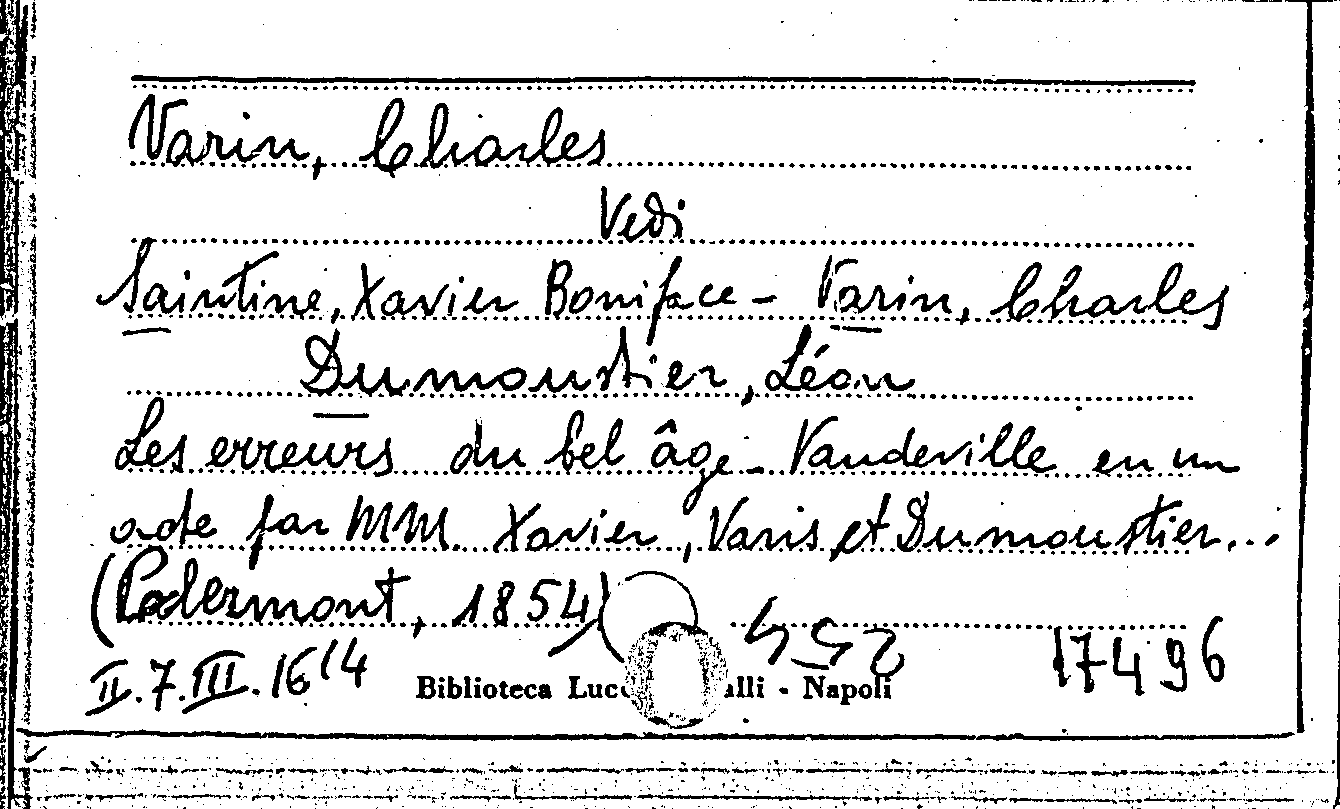 Varin, Charles
Vedi
Saintine, Xavier Boniface - Varin, Charles
Dumoustier, Léon
Les erreurs du bel âge - Vaudeville en un
acte par MM. Xavier, Varis et Dumoustier...
(Paris, 1854)
II.7.III.16(4 254 17496
Biblioteca Lucc alli - Napoli